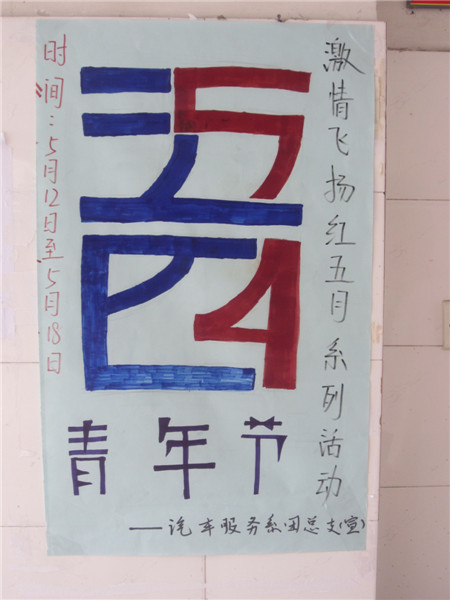 激情飞扬红五月系列活动
五四
青年节
时间：5月12日至5月18日
——汽车服务系团总支(宣)